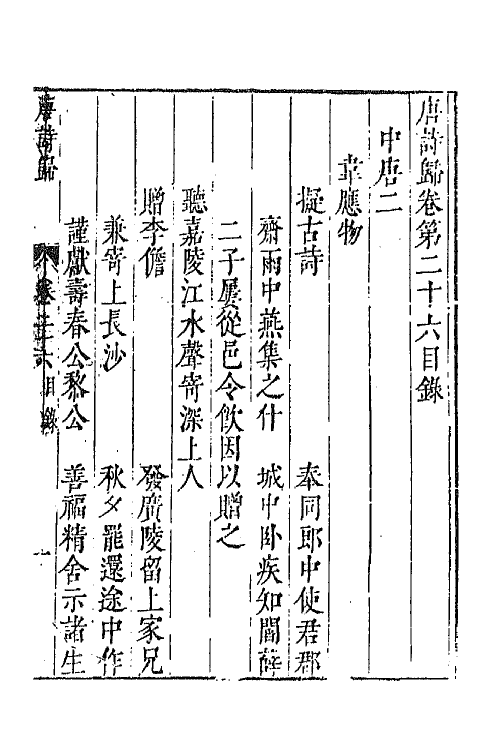 唐詩歸卷第二十六目錄
中唐二
韋應物
擬古詩　奉同郎中使君郡
齋雨中燕集之什　城中臥疾知閻薛
二子屢從邑令飲因以贈之
聽嘉陵江水聲寄深上人
贈李儋　發廣陵留上家兄
兼寄上長沙　秋夕罷還途中作
謹獻壽春公黎公　善福精舍示諸生
唐詩歸　卷二十六目錄　一